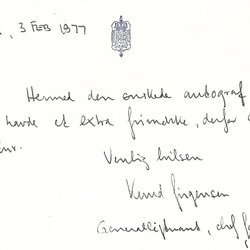 , 3 FEB 1977
Hermed den ønskede autograf
havde et extra frimærke, derfor
Venlig hilsen
Knud Jørgensen
Generalløjtnant, chef f